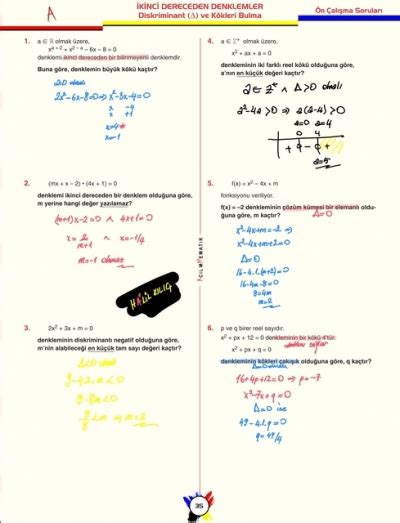 A
İKİNCİ DERECEDEN DENKLEMLER
Diskriminant (Δ) ve Kökleri Bulma
Ön Çalışma Soruları
1. a ∈ ℝ olmak üzere,
x^(a + 2) + x^(2 – a) – 6x – 8 = 0
denklemi ikinci dereceden bir bilinmeyenli denklemdir.
Buna göre, denklemin büyük kökü kaçtır?
2x²-6x-8=0 ⇒ x²-3x-4=0
x -4
x +1
x=4
x=-1
2. (mx + x – 2) • (4x + 1) = 0
denklemi ikinci dereceden bir denklem olduğuna göre,
m yerine hangi değer yazılamaz?
(m+1)x-2=0 ∧ 4x+1=0
x = 2/m+1 ∧ x=-1/4
m=-1 olamaz
HALİL KILIÇ
3. 2x² + 3x + m = 0
denkleminin diskriminantı negatif olduğuna göre,
m'nin alabileceği en küçük tam sayı değeri kaçtır?
Δ<0 olmalı
9-4.2.m<0
9-8m<0
9/8<m ⇒ m=2
ACİLMATEMATİK
4. a ∈ ℤ⁺ olmak üzere,
x² + ax + a = 0
denkleminin iki farklı reel kökü olduğuna göre,
a'nın en küçük değeri kaçtır?
a ∈ ℤ⁺ ∧ Δ>0 olmalı
a²-4a>0 ⇒ a(a-4)>0
a=0 a=4
0 4
+ 0 - 0 +
a=5
5. f(x) = x² – 4x + m
fonksiyonu veriliyor.
f(x) = –2 denkleminin çözüm kümesi bir elemanlı oldu-
ğuna göre, m kaçtır?
Δ=0
x²-4x+m=-2 ⇒
x²-4x+m+2=0
Δ=0
16-4.1.(m+2)=0
16-4m-8=0
8=4m
m=2
6. p ve q birer reel sayıdır.
x² + px + 12 = 0 denkleminin bir kökü 4'tür.
denklemi sağlar
x² + px + q = 0
denkleminin kökleri çakışık olduğuna göre, q kaçtır?
16+4p+12=0 ⇒ p=-7
x²-7x+q=0
Δ=0 ise
49-4.1.q=0
q=49/4
35